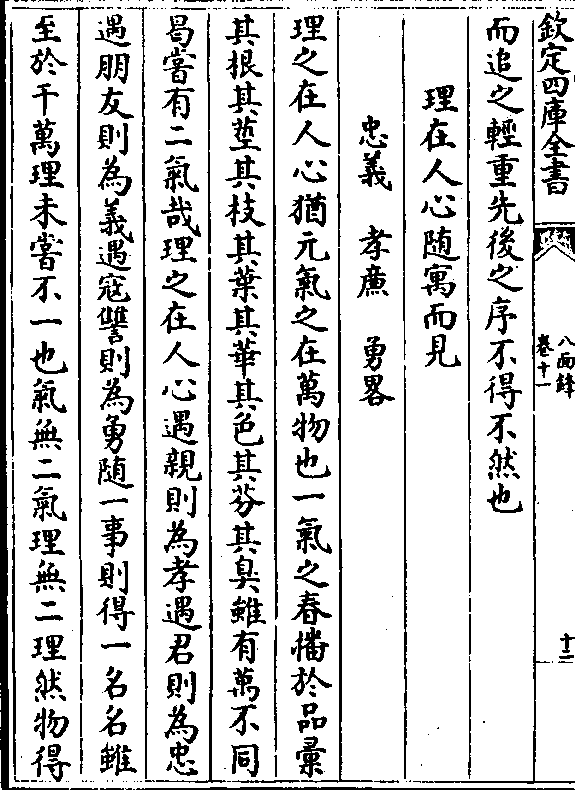 欽定四庫全書
八面鋒
卷十一
十二
而追之輕重先後之序不得不然也
理在人心随寓而見
忠義 孝廉 勇畧
理之在人心猶元氣之在萬物也一氣之春播於品彚
其根其莖其枝其葉其華其色其芬其臭雖有萬不同
曷嘗有二氣哉理之在人心遇親則為孝遇君則為忠
遇朋友則為義遇寇讐則為勇随一事則得一名名雖
至於千萬理未嘗不一也氣無二氣理無二理然物得